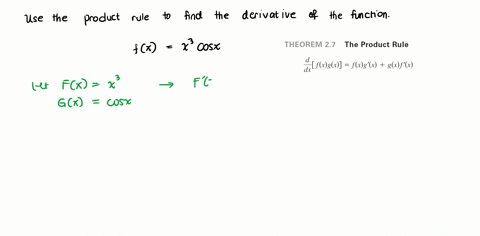 Use the product rule to find the derivative of the function.
f(x) = x³ cosx
THEOREM 2.7 The Product Rule
d/dt [f(x)g(x)] = f(x)g'(x) + g(x)f'(x)
let F(x) = x³ → F'(
G(x) = cosx